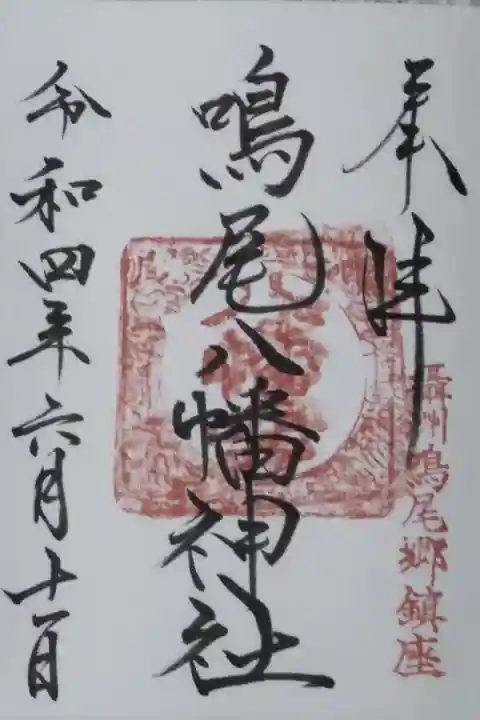 奉拝
攝州鳴尾郷鎮座
鳴尾八幡神社
令和四年六月十一日